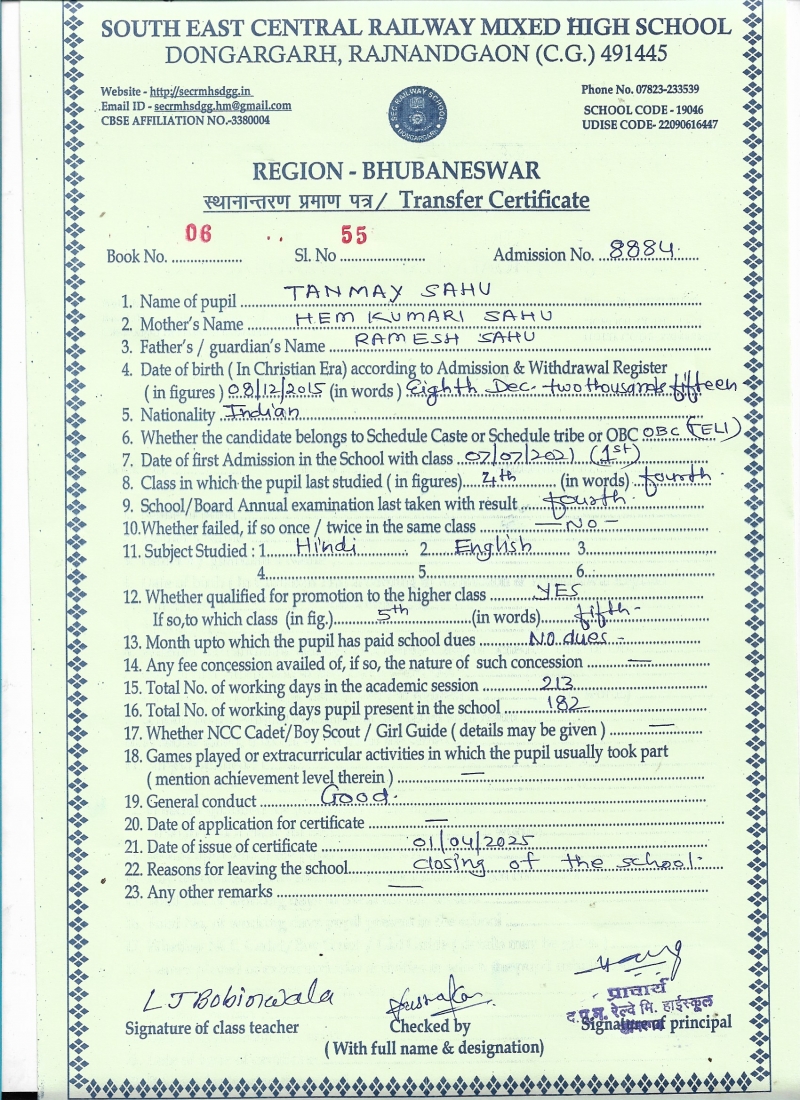 SOUTH EAST CENTRAL RAILWAY MIXED HIGH SCHOOL
DONGARGARH, RAJNANDGAON (C.G.) 491445
Website - http://secrmhsdgg.in
Email ID - secrmhsdgg.hm@gmail.com
CBSE AFFILIATION NO.-3380004
SEC RAILWAY SCHOOL
DONGARGARH
Phone No. 07823-233539
SCHOOL CODE - 19046
UDISE CODE- 22090616447
REGION - BHUBANESWAR
स्थानान्तरण प्रमाण पत्र / Transfer Certificate
Book No. 06 Sl. No 55 Admission No. 8884
1. Name of pupil TANMAY SAHU
2. Mother's Name HEM KUMARI SAHU
3. Father's / guardian's Name RAMESH SAHU
4. Date of birth ( In Christian Era) according to Admission & Withdrawal Register
( in figures ) 08/12/2015 (in words ) Eighth Dec. two thousands fifteen
5. Nationality Indian
6. Whether the candidate belongs to Schedule Caste or Schedule tribe or OBC OBC (TELI)
7. Date of first Admission in the School with class 07/07/2021 (1st)
8. Class in which the pupil last studied ( in figures) 4th (in words) fourth.
9. School/Board Annual examination last taken with result fourth.
10.Whether failed, if so once / twice in the same class — No —
11. Subject Studied : 1. Hindi 2. English 3.
4. 5. 6.
12. Whether qualified for promotion to the higher class YES
If so,to which class (in fig.) 5th (in words) fifth-
13. Month upto which the pupil has paid school dues No dues -
14. Any fee concession availed of, if so, the nature of such concession —
15. Total No. of working days in the academic session 213
16. Total No. of working days pupil present in the school 182
17. Whether NCC Cadet/Boy Scout / Girl Guide ( details may be given ) —
18. Games played or extracurricular activities in which the pupil usually took part
( mention achievement level therein ) —
19. General conduct Good.
20. Date of application for certificate —
21. Date of issue of certificate 01/04/2025
22. Reasons for leaving the school closing of the school.
23. Any other remarks —
L J Bobinwala
प्राचार्य
द.पू.म. रेल्वे मि. हाईस्कूल
Signature of class teacher Checked by Signature of principal
( With full name & designation)